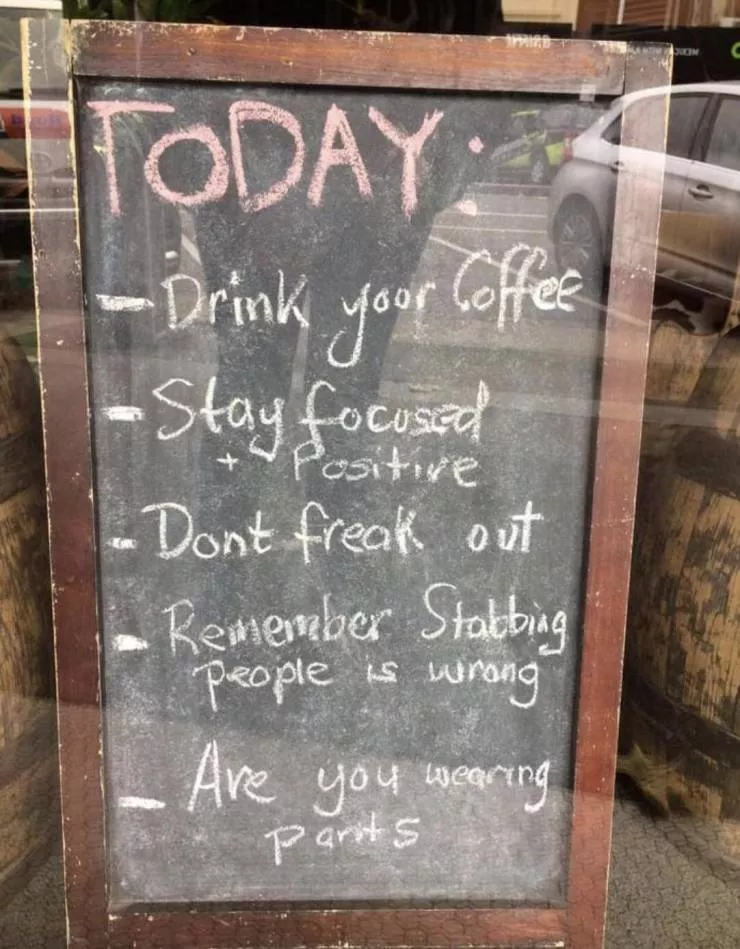 TODAY:
- Drink your Coffee
- Stay focused
+ Positive
- Dont freak out
- Remember Stabbing
people is wrong
- Are you wearing
pants